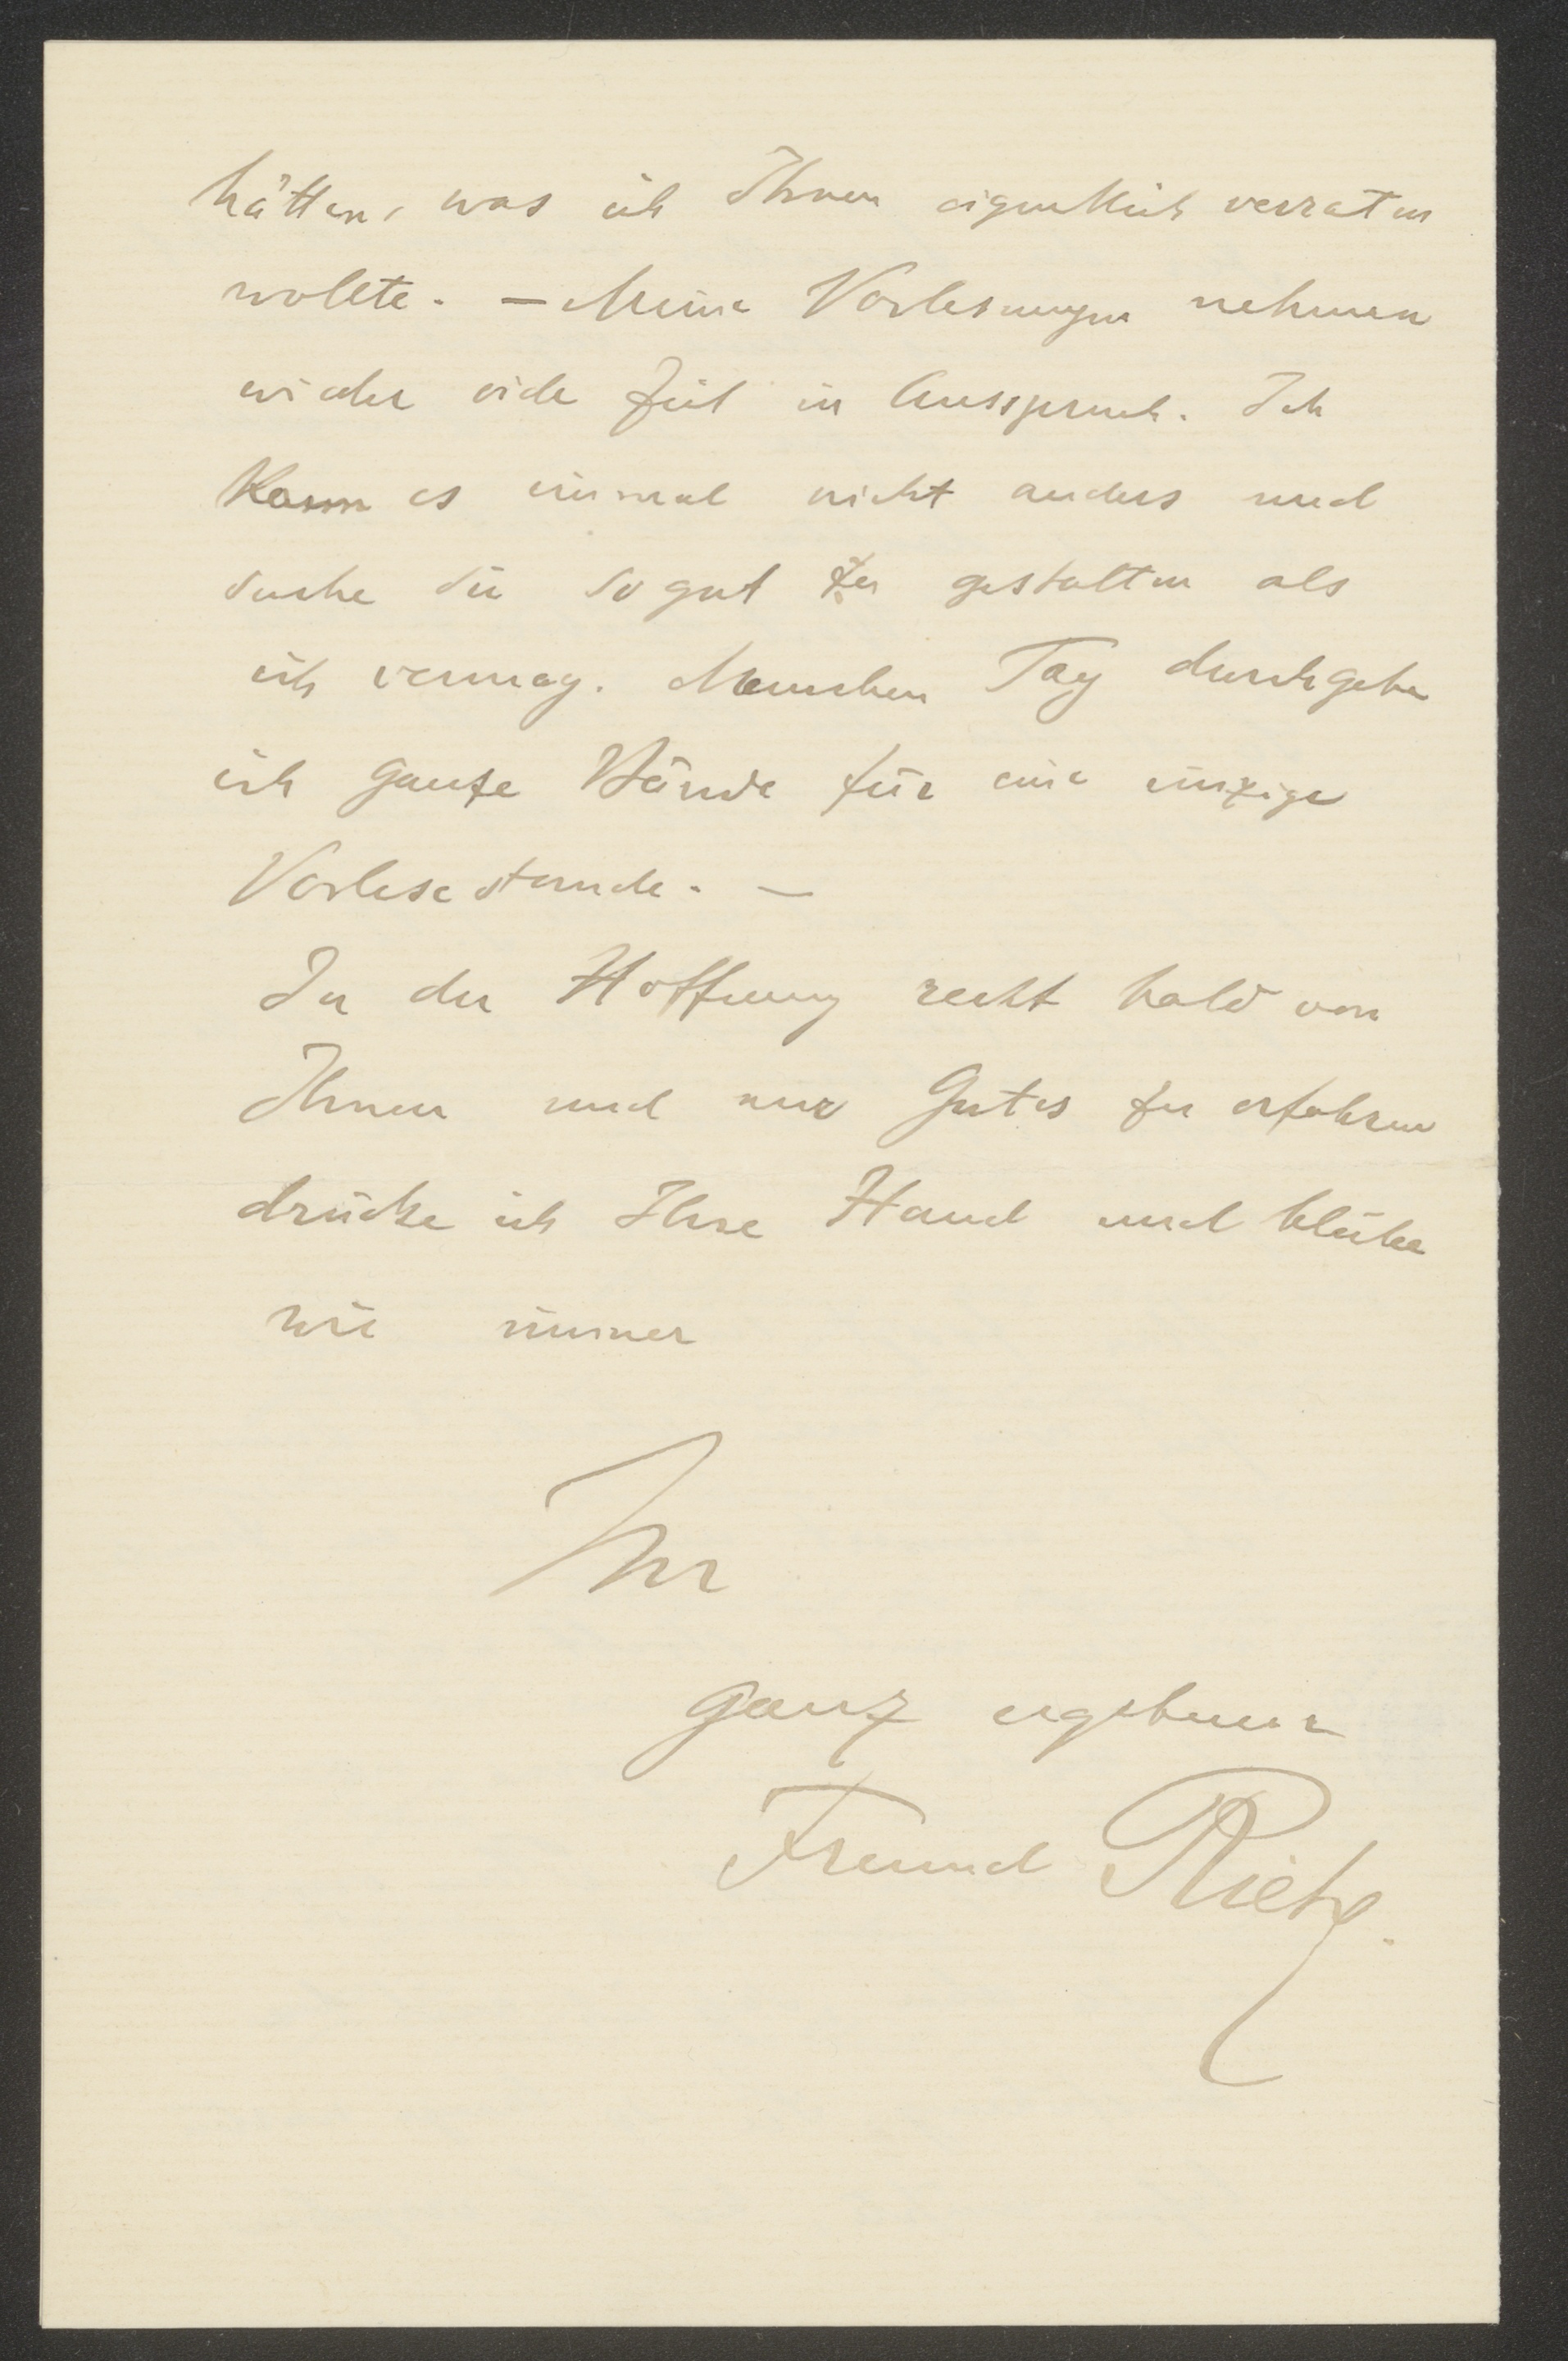 hätten, was ich Ihnen eigentlich verraten
wollte. – Meine Vorlesungen nehmen
wieder viele Zeit in Anspruch. Ich
kann es einmal nicht anders und
suche sie so gut zu gestalten als
ich vermag. Manchen Tag durchgehe
ich ganze Bände für eine einzige
Vorlesestunde. –
In der Hoffnung recht bald von
Ihnen und nur Gutes zu erfahren
drücke ich Ihre Hand und bleibe
wie immer
Ihr
ganz ergebener
Freund Riehl.